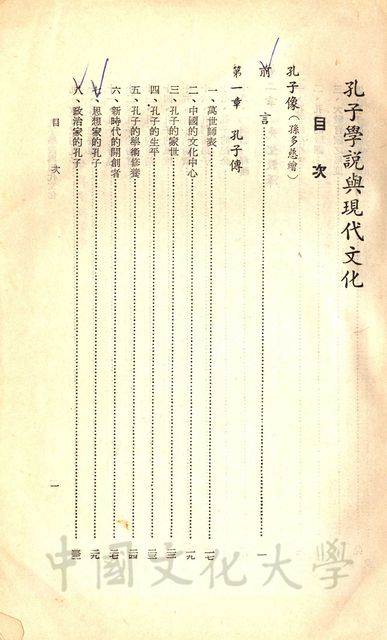 孔子學說與現代文化
目次
孔子像（孫多慈繪）
前言……一
第一章 孔子傳
一、萬世師表……一七
二、中國的文化中心……一九
三、孔子的家世……二三
四、孔子的生平……二三
五、孔子的學術修養……二四
六、新時代的開創者……二七
七、思想家的孔子……二九
八、政治家的孔子……三三
目次
一
中國文化大學